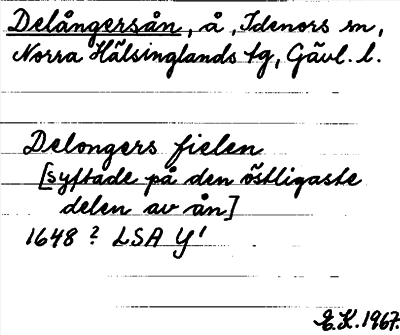 Delångersån, å, Idenors sn,
Norra Hälsinglands tg, Gävl. l.
Delongers fielen
[syftade på den östligaste
delen av ån]
1648 ? LSA Y'
E.K. 1967.